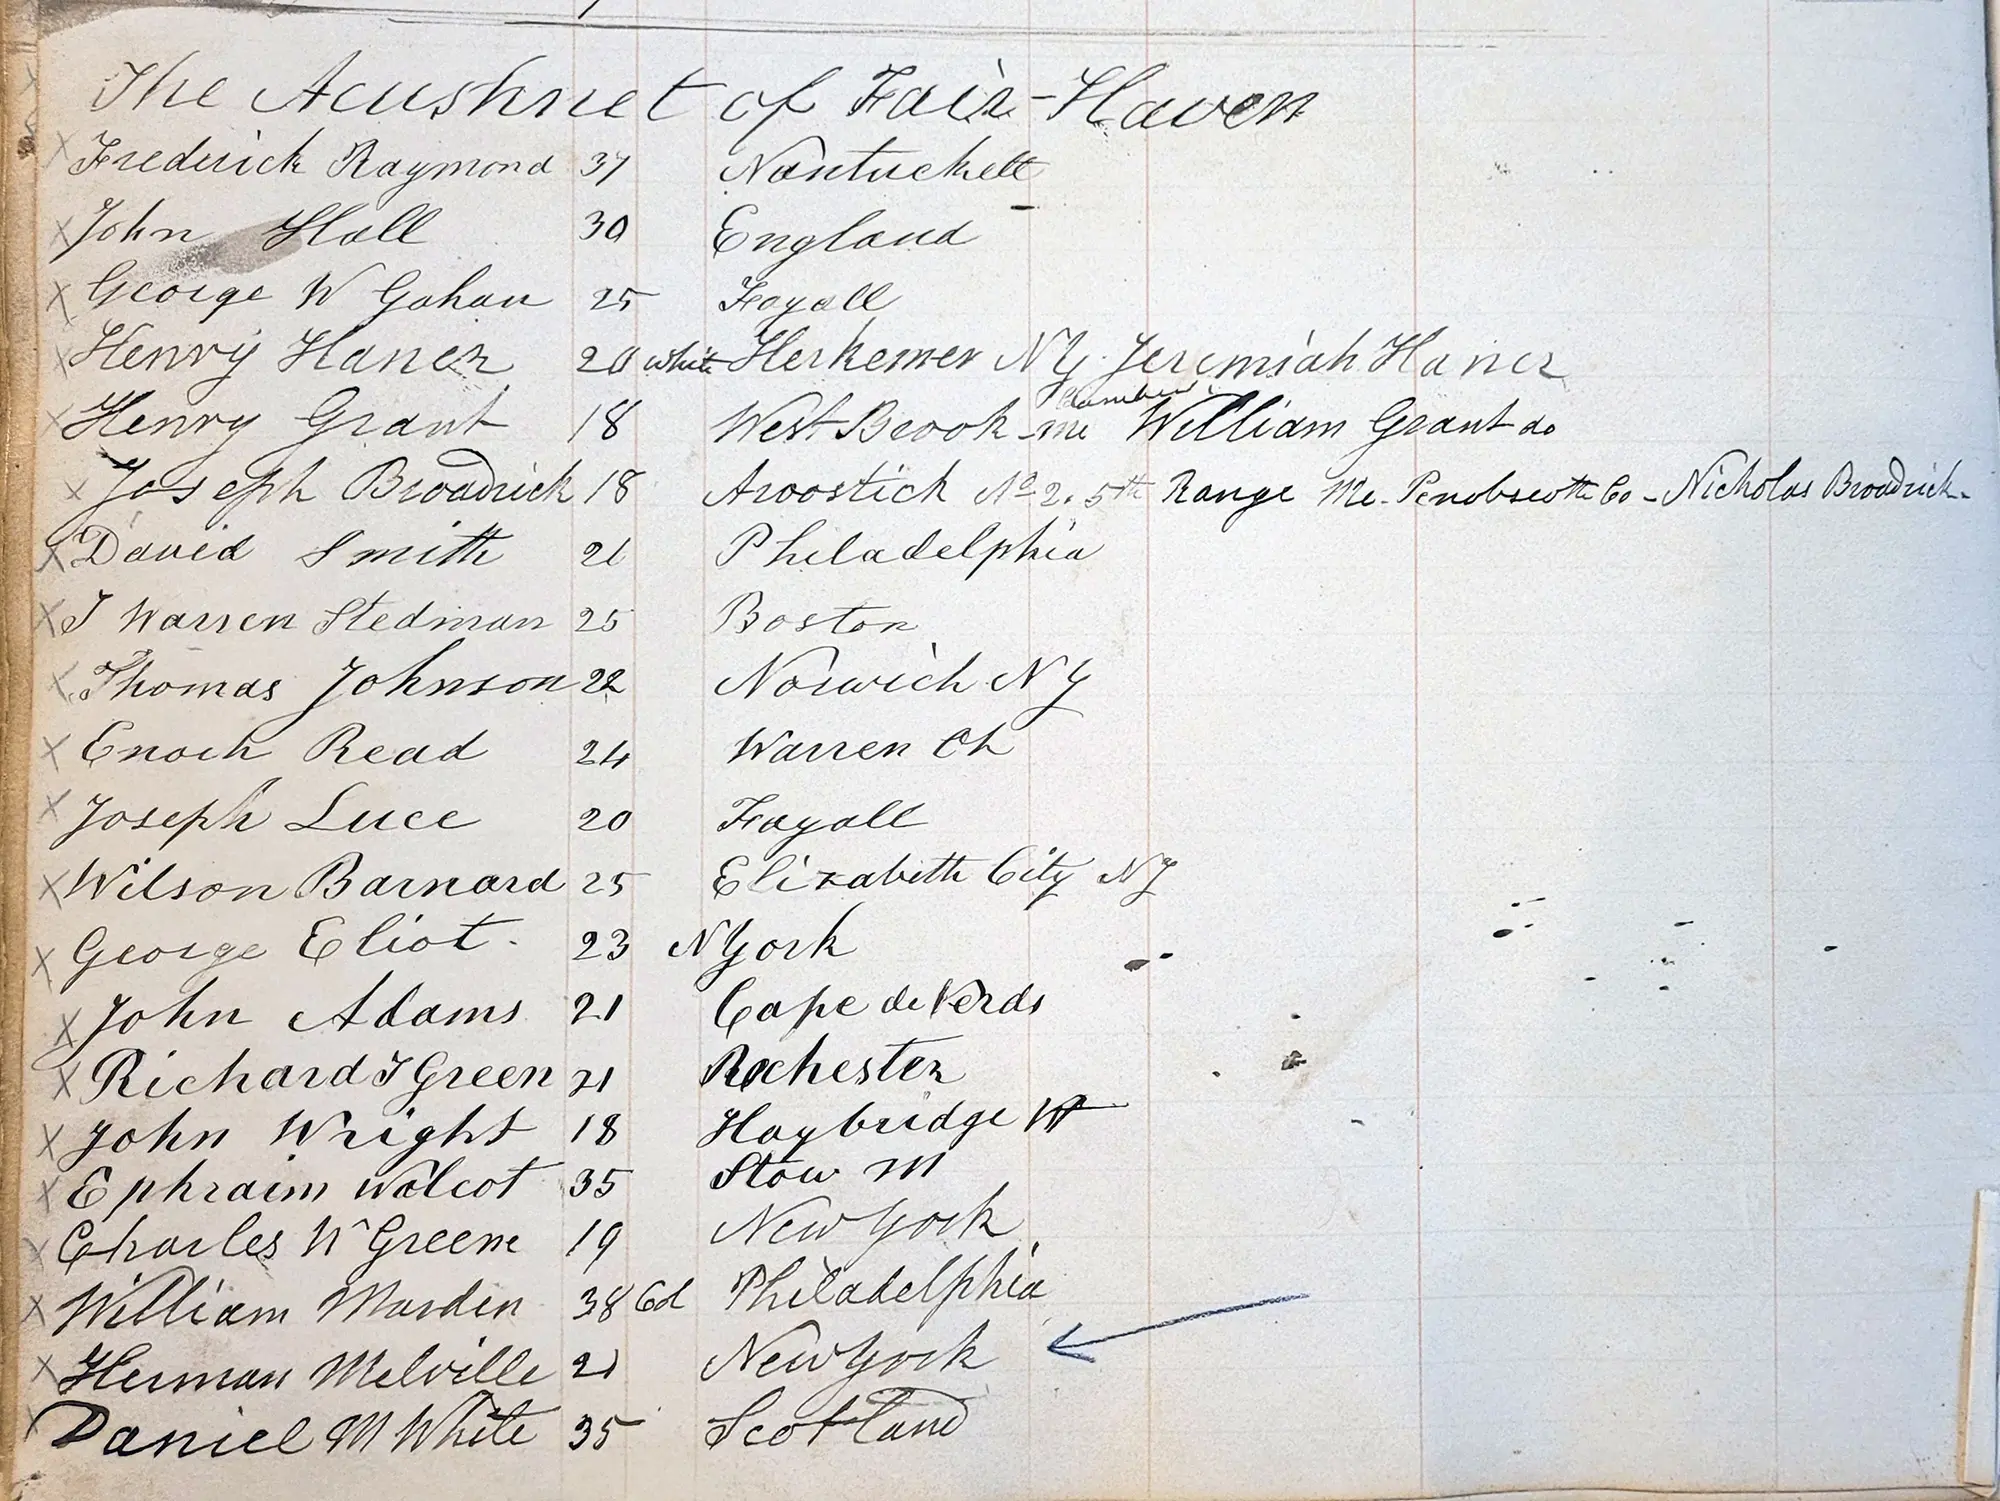 The Acushnet of Fair-Haven
Frederick Raymond 37 Nantuckett
John Hall 30 England
George W Gahan 25 Fayall
Henry Haner 20 white Herkemer NY. Jeremiah Haner
Henry Grant 18 West Brook me William Grant do
Joseph Broadrick 18 Aroostick No 2. 5th Range Me. Penobscott Co - Nicholas Broadrick.
David Smith 21 Philadelphia
J Warren Stedman 25 Boston
Thomas Johnson 22 Norwich NY
Enoch Read 24 Warren
Joseph Luce 20 Fayall
Wilson Barnard 25 Elizabeth City NJ
George Eliot. 23 N York
John Adams 21 Cape de Verds
Richard T Green 21 Rochester
John Wright 18 Haybridge Vt
Ephraim Walcot 35 Stow M
Charles W Greene 19 New York
William Marden 38 Cd Philadelphia
Herman Melville 21 New York
Daniel M White 35 Scotland